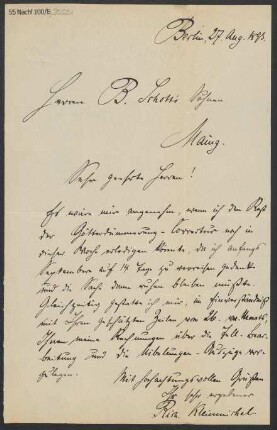 55 Nachl 100/B
Berlin, 27. Aug. 1893.
Herren B. Schott's Söhne
Mainz.
Sehr geehrte Herren!
Es wäre mir angenehm, wenn ich den Rest
der Götterdämmerung-Correctur noch in
dieser Woche erledigen könnte, da ich anfangs
September auf 14 Tage zu verreisen gedenke
und die Sache dann ruhen bleiben müßte.
Gleichzeitig gestatte ich mir, in
mit Ihren geschätzten Zeilen vom 26. ds. Monats
Ihnen meine Rechnungen über die Bear-
beitung und die Nibelungen-Auszüge vor-
zulegen.
Mit hochachtungsvollen Grüßen
Ihr sehr ergebener
Rich. Kleinmichel